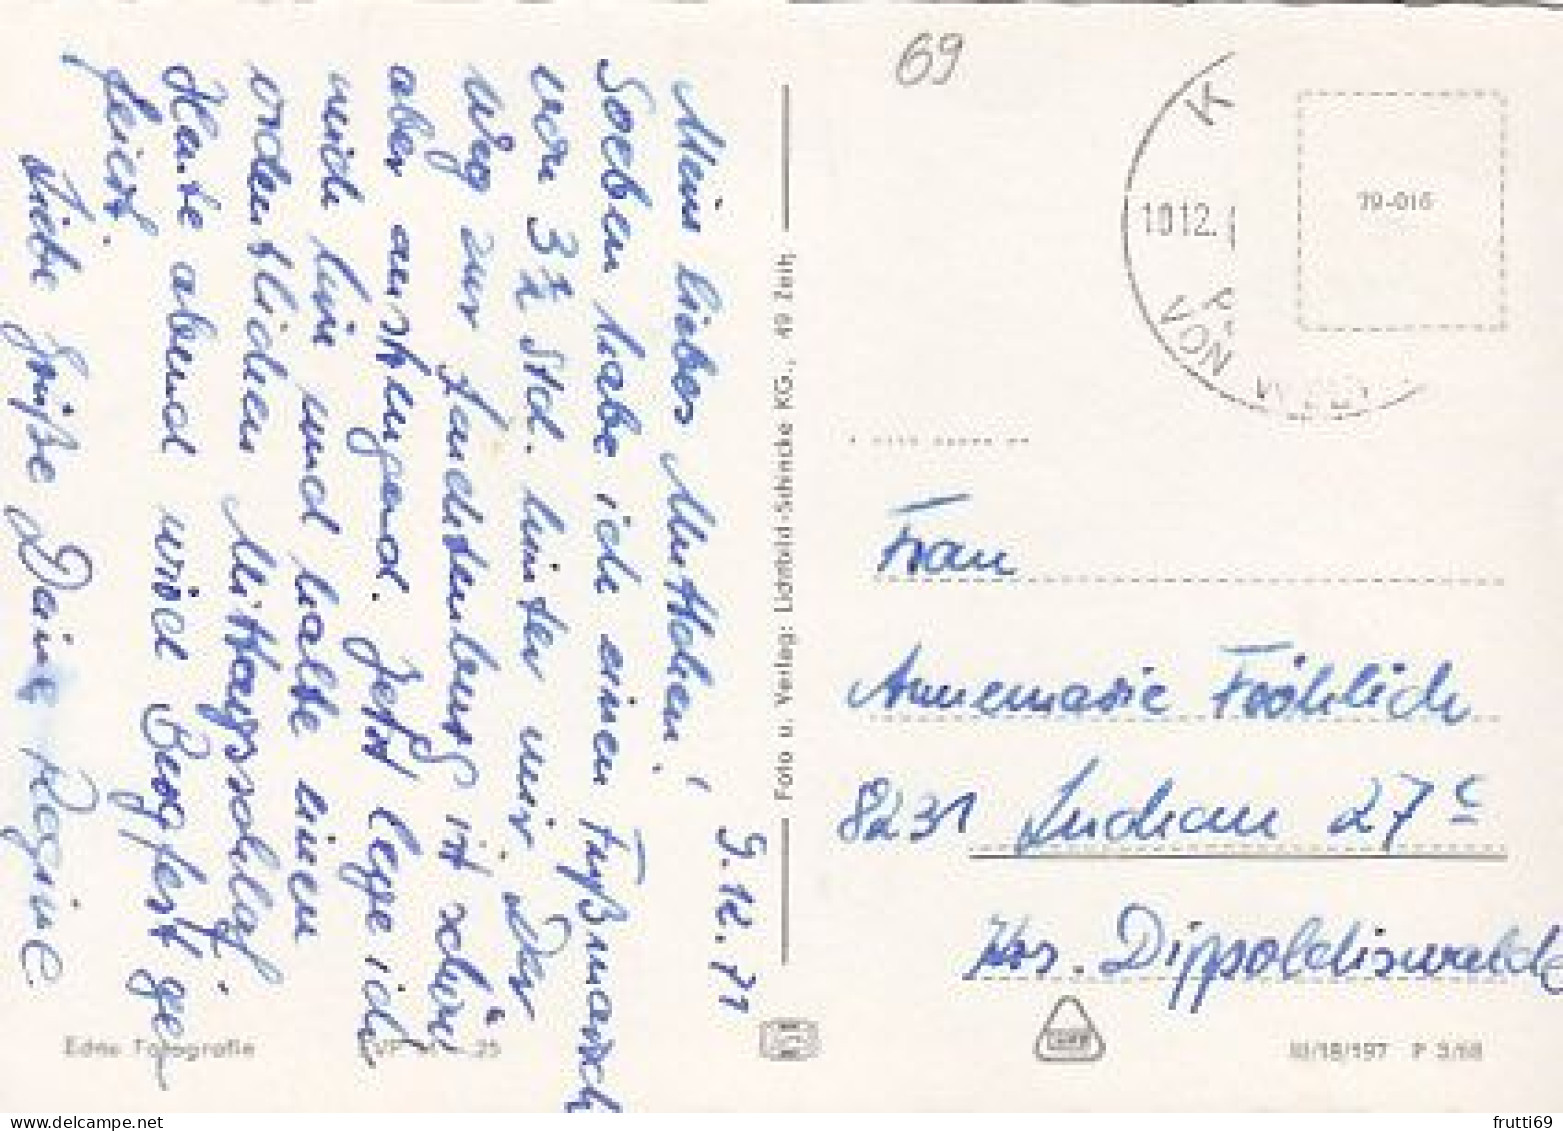 9.12.71
Mein liebes Muttchen!
Soeben habe ich einen Fußmarsch
von 3½ Std. hinter mir. Der
Weg zur
ist schön
aber anstrengend. Jetzt lege ich
mich hin und halte einen
ordentlichen Mittagsschlaf.
Heute abend wird Bergfest ge
feiert.
Liebe Grüße Deine Regine
Echte Fotografie
25
Foto u. Verlag: Lichtbild-Schincke KG., 49 Zeitz
69
K
10.12.
VON
79-016
Frau
Annemarie Fröhlich
8231 Luchau 27c
Krs. Dippoldiswalde
III/18/197 P 3/68
frutti69